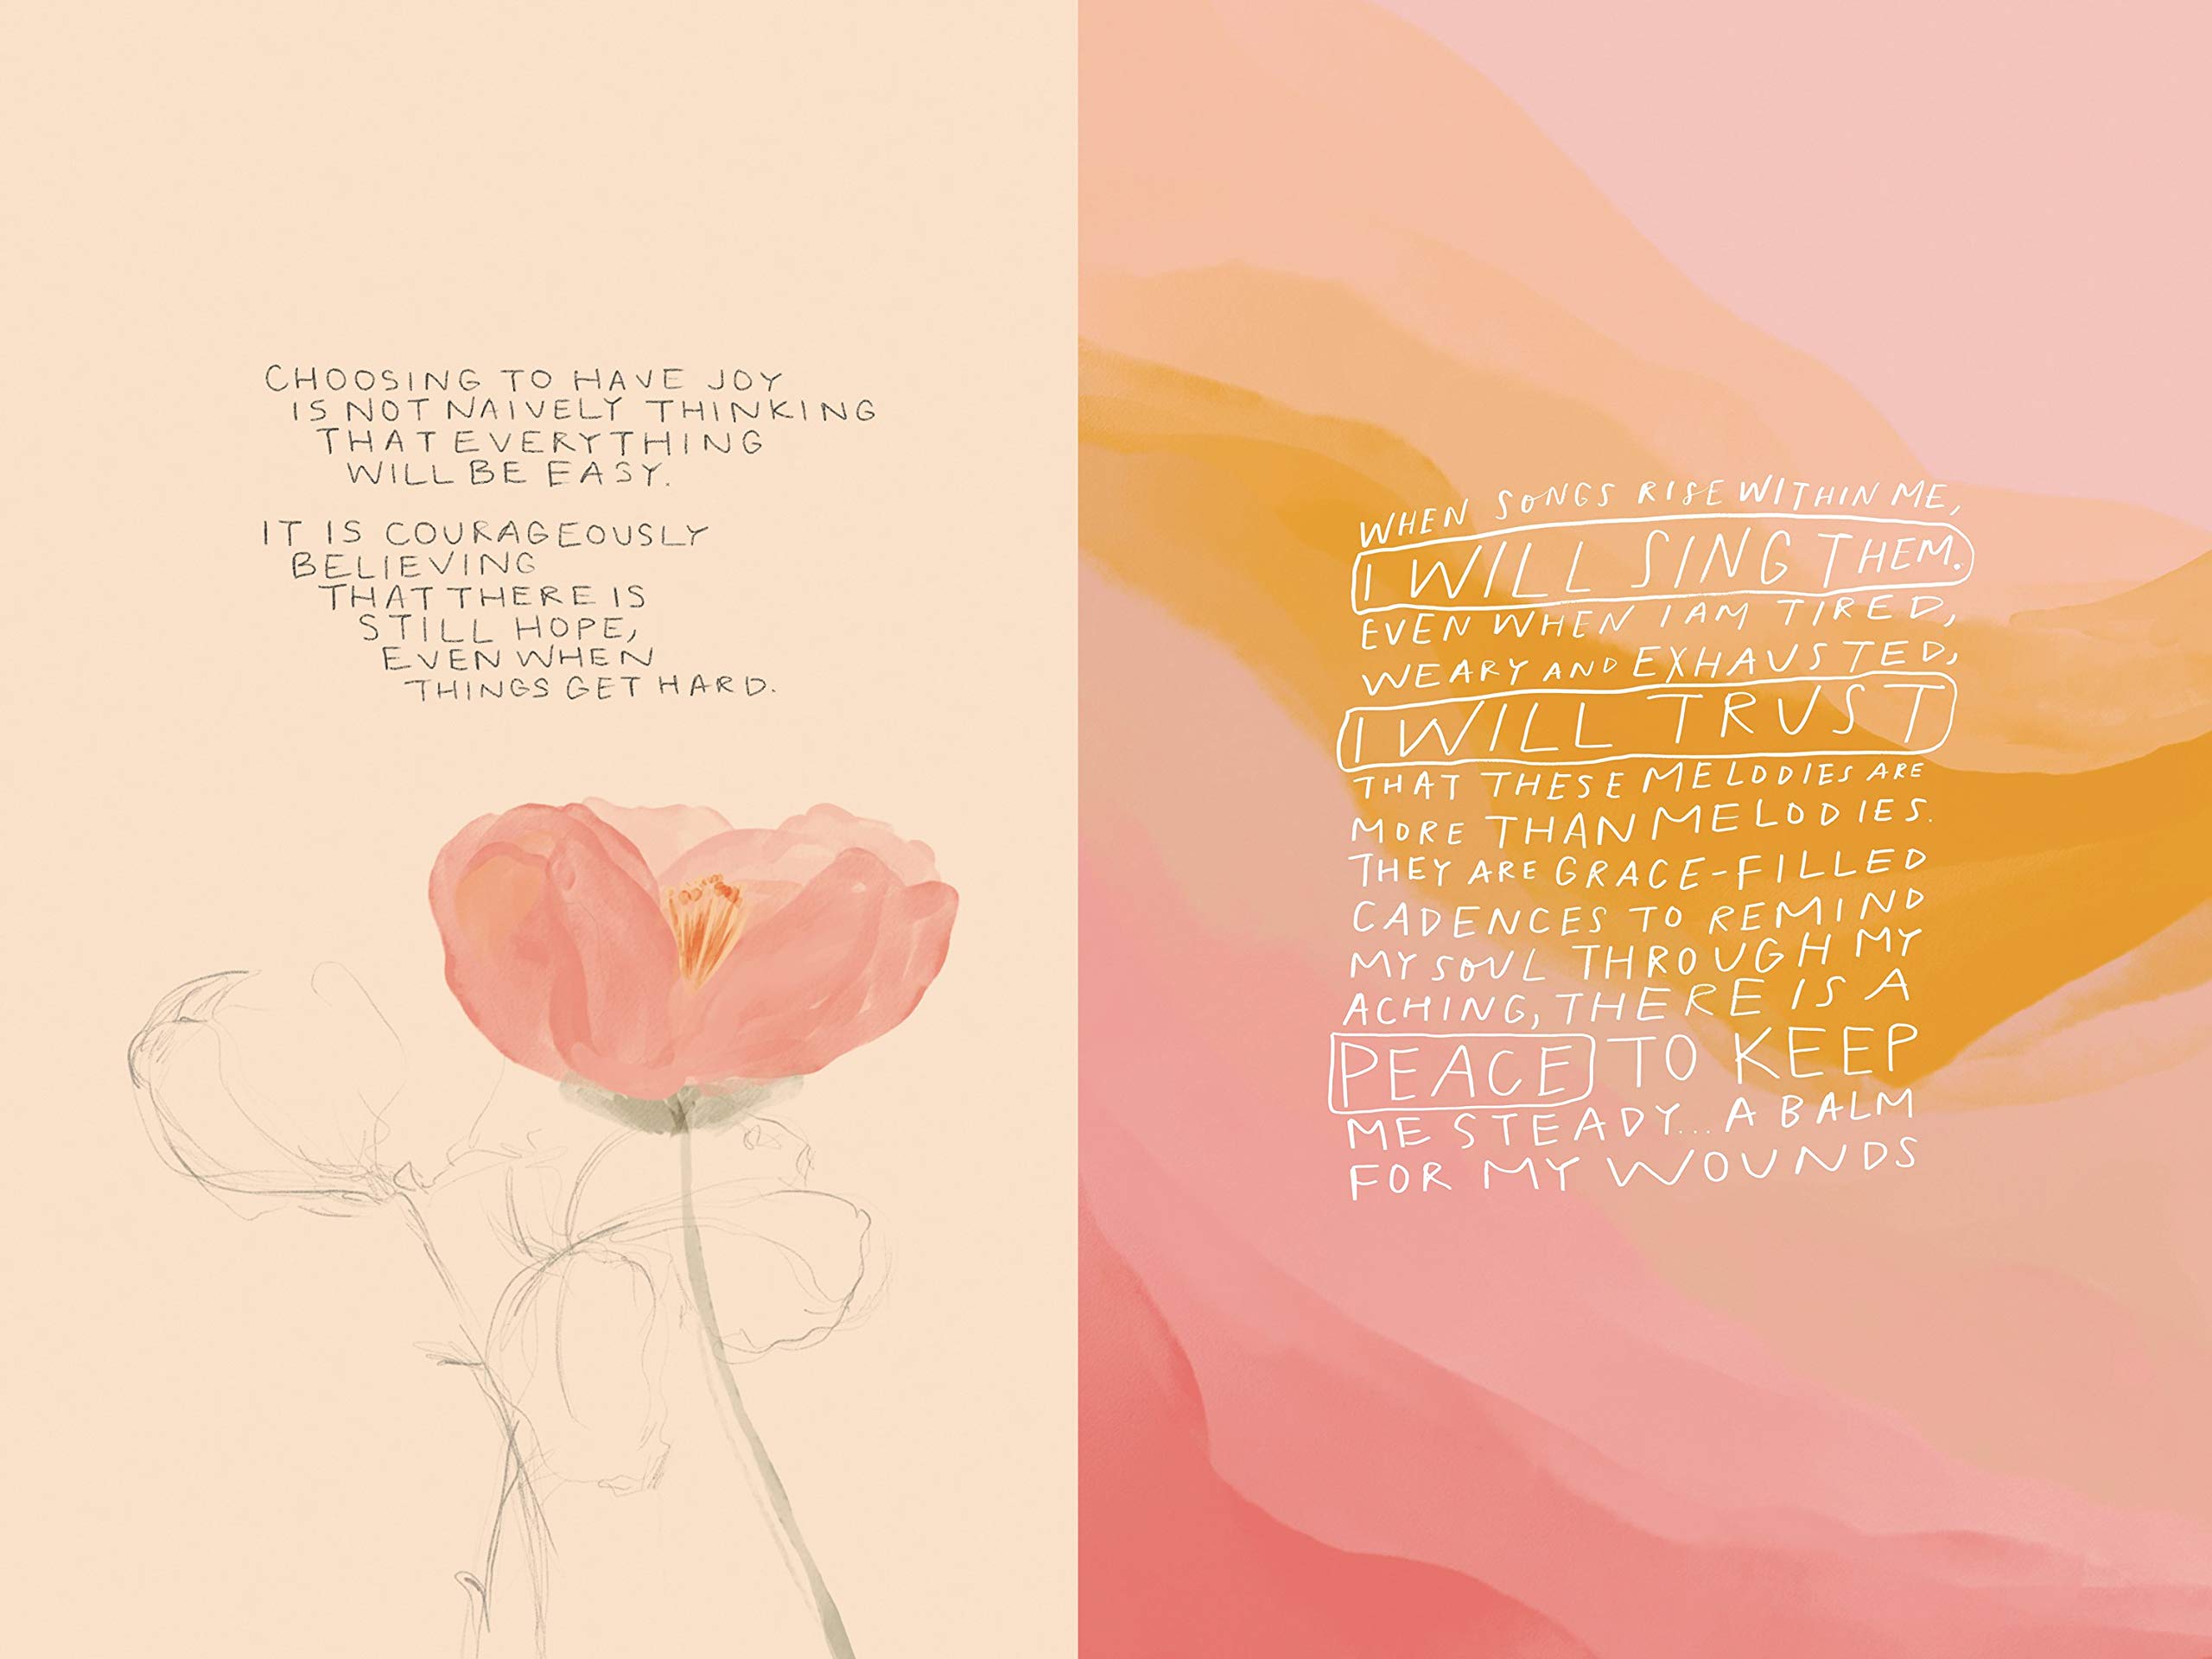 CHOOSING TO HAVE JOY
IS NOT NAIVELY THINKING
THAT EVERYTHING
WILL BE EASY.
IT IS COURAGEOUSLY
BELIEVING
THAT THERE IS
STILL HOPE,
EVEN WHEN
THINGS GET HARD.
WHEN SONGS RISE WITHIN ME,
I WILL SING THEM.
EVEN WHEN I AM TIRED,
WEARY AND EXHAUSTED,
I WILL TRUST
THAT THESE MELODIES ARE
MORE THAN MELODIES.
THEY ARE GRACE-FILLED
CADENCES TO REMIND
MY SOUL THROUGH MY
ACHING, THERE IS A
PEACE TO KEEP
ME STEADY... A BALM
FOR MY WOUNDS